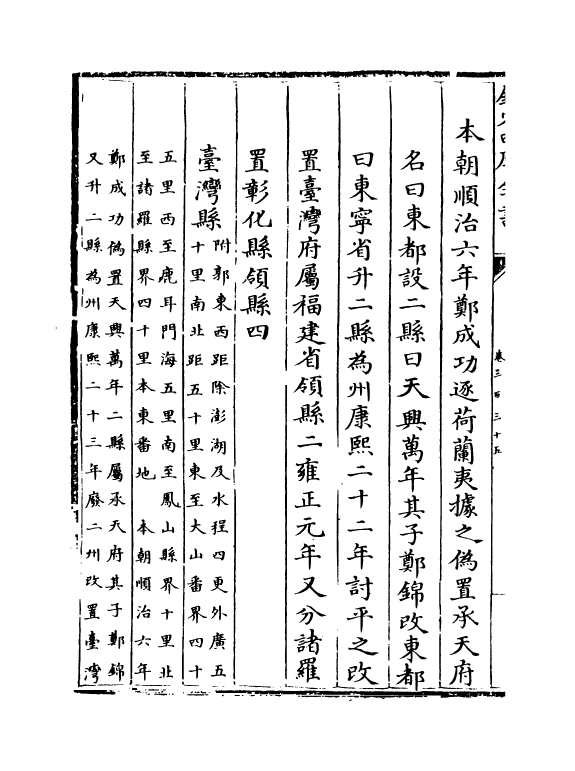 本朝順治六年鄭成功逐荷蘭夷據之偽置承天府
名曰東都設二縣曰天興萬年其子鄭錦改東都
曰東寧省升二縣為州康熙二十二年討平之改
置臺灣府屬福建省領縣二雍正元年又分諸羅
置彰化縣領縣四
臺灣縣
附郭東西距除澎湖及水程四更外廣五
十里南北距五十里東至大山番界四十
五里西至鹿耳門海五里南至鳳山縣界十里北
至諸羅縣界四十里本東番地 本朝順治六年
鄭成功偽置天興萬年二縣屬承天府其子鄭錦
又升二縣為州康熙二十三年廢二州改置臺灣
卷三百三十五